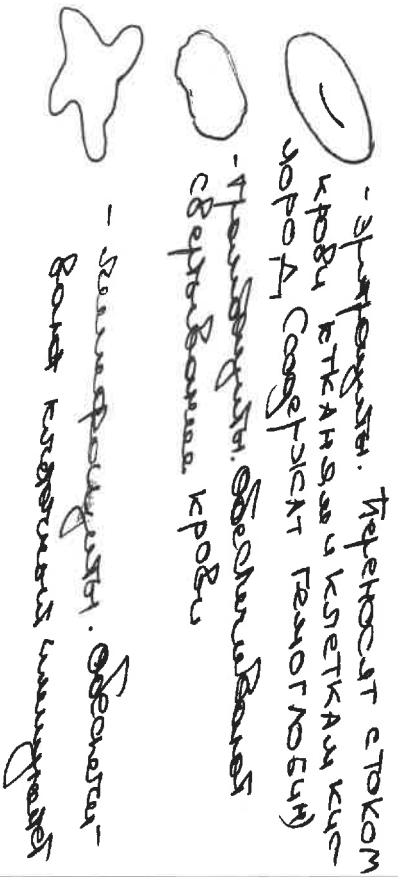 - Эритроциты. Переносят с током
крови к тканям и клеткам кис-
лород, Содержат гемоглобин)
- Тромбоциты. Обеспечивают
свертывание крови
- Лейкоциты. Обеспечи-
вают клеточный иммунитет